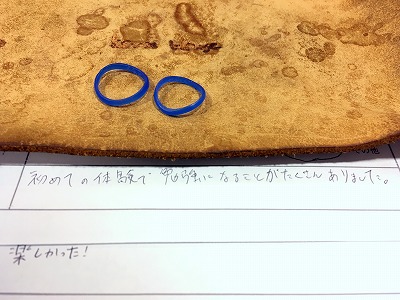 初めての体験で勉強になることがたくさんありました。
楽しかった!